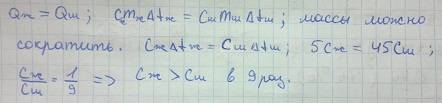 Qж = Qш; cmжΔtж = CшmшΔtш; массы можно
сократить. CжΔtж = CшΔtш; 5Cж = 45Cш;
Cж/Cш = 1/9 => Cж > Cш в 9 раз.